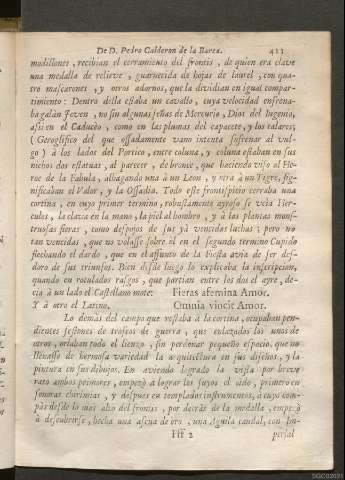 De D. Pedro Calderon de la Barca. 413
modillones, recibian el cerramiento del frontis, de quien era clave
una medalla de relieve, guarnecida de hojas de laurel, con qua-
tro mascarones, y otros adornos, que la dividian en igual compar-
timiento: Dentro della estaba un cavallo, cuya velocidad enfrena-
ba galàn Joven, no sin algunas señas de Mercurio, Dios del Ingenio,
assi en el Caducèo, como en las plumas del capacete, y los talares,
(Geroglifico del que ossadamente vano intenta sufrenar al vul-
go) à los lados del Portico, entre coluna, y coluna estaban en sus
nichos dos estatuas, al parecer, de bronce, que haciendo viso al He-
roe de la Fabula, alhagando una à un Leon, y otra à un Tygre, sig-
nificaban el Valor, y la Ossadia. Todo este frontispicio cerraba una
cortina, en cuyo primer termino, robustamente ayroso se veìa Her-
cules, la clava en la mano, la piel al hombro, y à las plantas mons-
truosas fieras, como despojos de sus yà vencidas luchas; pero no
tan vencidas, que no volasse sobre èl en el segundo termino Cupido
flechando el dardo, que en el assunto de la Fiesta avia de ser desdo-
ro de sus triunfos. Bien desde luego lo explicaba la inscripcion,
quando en rotulados rasgos, que partian entre los dos el ayre, de-
cia à un lado el Castellano mote: Fieras afemina Amor.
Y à otro el Latino. Omnia vincit Amor.
Lo demás del campo que restaba à la cortina, ocupaban pen-
dientes festones de trofeos de guerra, que enlazados los unos de
otros, orlaban todo el lienzo, sin perdonar pequeño espacio, que no
llenasse de hermosa variedad la arquitectura en sus diseños, y la
pintura en sus dibujos. En aviendo logrado la vista por breve
rato ambos primores, empezò à lograr los suyos el oìdo, primero en
sonoras chirimias, y despues en templados instrumentos, à cuyo com-
pàs desde lo mas alto del frontis, por detràs de la medalla, empezò
à descubrirse, hecha una ascua de oro, una Aguila caudal, con Im-
Fff 2 perial
SGC02021